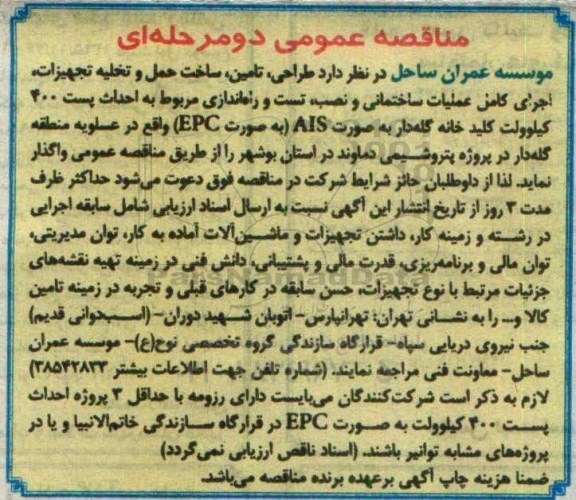 مناقصه عمومی دومرحله‌ای
موسسه عمران ساحل در نظر دارد طراحی، تامین، ساخت حمل و تخلیه تجهیزات،
اجرای کامل عملیات ساختمانی و نصب، تست و راه‌اندازی مربوط به احداث پست ۴۰۰
کیلوولت کلید خانه گله‌دار به صورت AIS (به صورت EPC) واقع در عسلویه منطقه
گله‌دار در پروژه پتروشیمی دماوند در استان بوشهر را از طریق مناقصه عمومی واگذار
نماید. لذا از داوطلبان حائز شرایط شرکت در مناقصه فوق دعوت می‌شود حداکثر ظرف
مدت ۳ روز از تاریخ انتشار این آگهی نسبت به ارسال اسناد ارزیابی شامل سابقه اجرایی
در رشته و زمینه کار، داشتن تجهیزات و ماشین‌آلات آماده به کار، توان مدیریتی،
توان مالی و برنامه‌ریزی، قدرت مالی و پشتیبانی، دانش فنی در زمینه تهیه نقشه‌های
جزئیات مرتبط با نوع تجهیزات، حسن سابقه در کارهای قبلی و تجربه در زمینه تامین
کالا و... را به نشانی تهران: تهرانپارس- اتوبان شهید دوران- (اسب‌دوانی قدیم)
جنب نیروی دریایی سپاه- قرارگاه سازندگی گروه تخصصی نوح(ع)- موسسه عمران
ساحل- معاونت فنی مراجعه نمایند. (شماره تلفن جهت اطلاعات بیشتر ۳۸۵۴۲۸۳۳)
لازم به ذکر است شرکت‌کنندگان می‌بایست دارای رزومه با حداقل ۳ پروژه احداث
پست ۴۰۰ کیلوولت به صورت EPC در قرارگاه سازندگی خاتم‌الانبیا و یا در
پروژه‌های مشابه توانیر باشند. (اسناد ناقص ارزیابی نمی‌گردد)
ضمنا هزینه چاپ آگهی برعهده برنده مناقصه می‌باشد.